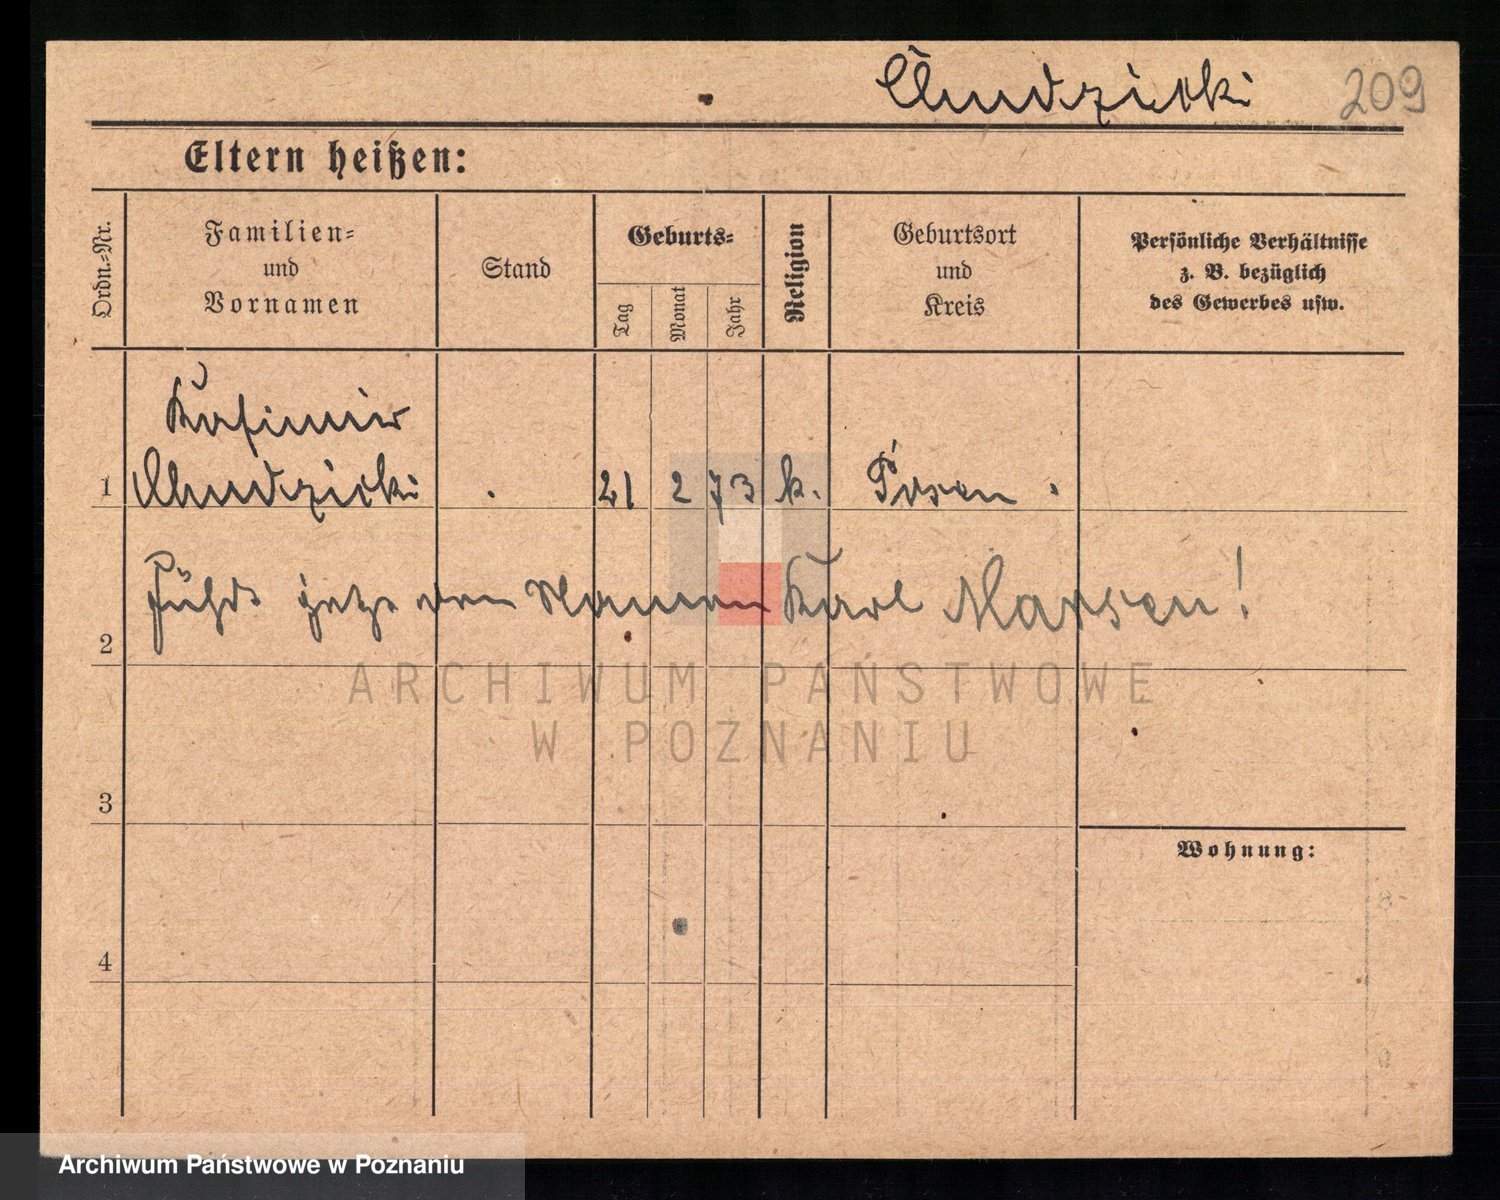 Chudzicki
209
Eltern heißen:
Ordn.-Nr.
Familien-
und
Vornamen
Stand
Geburts-
Tag
Monat
Jahr
Religion
Geburtsort
und
Kreis
Persönliche Verhältnisse
z. B. bezüglich
des Gewerbes usw.
Kasimir
1 Chudzicki 21 2 73 k. Posen
Führt jetzt den Namen Karl Marsen!
2
ARCHIWUM PAŃSTWOWE
W POZNANIU
3
Wohnung:
4
Archiwum Państwowe w Poznaniu